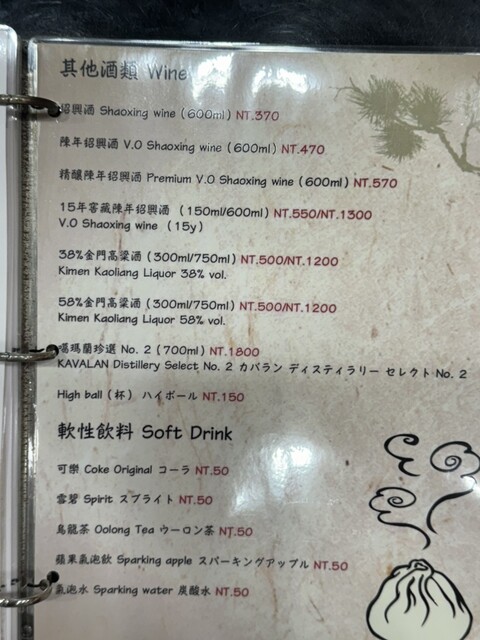 其他酒類 Wine
紹興酒 Shaoxing wine (600ml) NT.370
陳年紹興酒 V.O Shaoxing wine (600ml) NT.470
精釀陳年紹興酒 Premium V.O Shaoxing wine (600ml) NT.570
15年窖藏陳年紹興酒 (150ml/600ml) NT.550/NT.1300
V.O Shaoxing wine (15y)
38%金門高粱酒 (300ml/750ml) NT.500/NT.1200
Kimen Kaoliang Liquor 38% vol.
58%金門高粱酒 (300ml/750ml) NT.500/NT.1200
Kimen Kaoliang Liquor 58% vol.
噶瑪蘭珍選 No. 2 (700ml) NT.1800
KAVALAN Distillery Select No. 2 カバラン ディスティラリー セレクト No. 2
High ball (杯) ハイボール NT.150
軟性飲料 Soft Drink
可樂 Coke Original コーラ NT.50
雪碧 Spirit スプライト NT.50
烏龍茶 Oolong Tea ウーロン茶 NT.50
蘋果氣泡飲 Sparking apple スパーキングアップル NT.50
氣泡水 Sparking water 炭酸水 NT.50